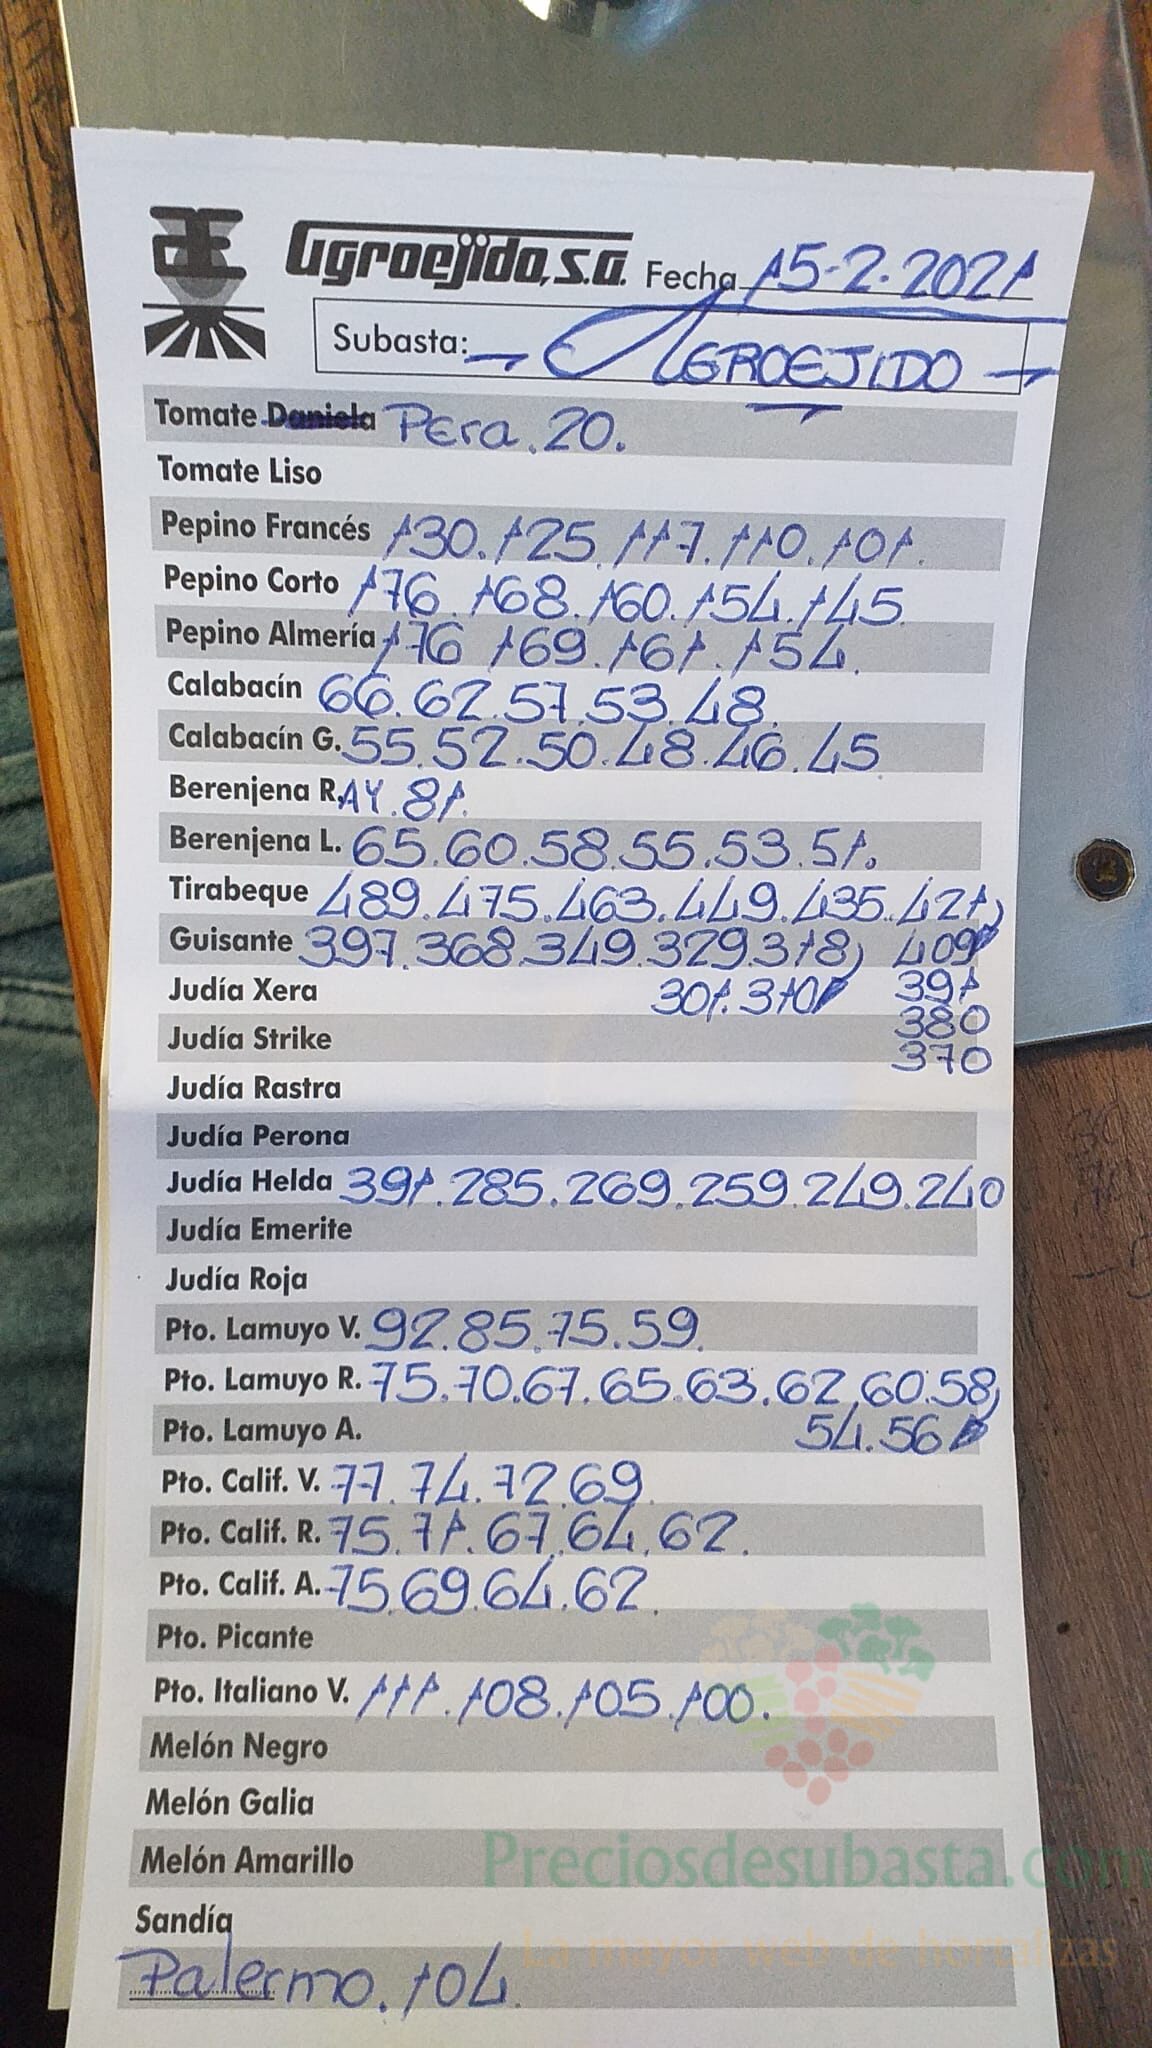 Œ Agroejido, s.a. Fecha 15-2-2021
Subasta: → AGROEJIDO →
Tomate Daniela Pera. 20.
Tomate Liso
Pepino Francés 130. 125. 117. 110. 101.
Pepino Corto 176. 168. 160. 154. 145.
Pepino Almería 176 169. 161. 154.
Calabacín 66. 62. 57. 53. 48.
Calabacín G. 55. 52. 50. 48. 46. 45
Berenjena R. AY. 81.
Berenjena L. 65. 60. 58. 55. 53. 51.
Tirabeque 489. 475. 463. 449. 435. 421
Guisante 397. 368. 349. 329. 318 409
Judía Xera 301. 310 391
Judía Strike 380
370
Judía Rastra
Judía Perona
Judía Helda 391. 285. 269. 259. 249. 240
Judía Emerite
Judía Roja
Pto. Lamuyo V. 92. 85. 75. 59.
Pto. Lamuyo R. 75. 70. 67. 65. 63. 62. 60. 58
Pto. Lamuyo A. 54. 56
Pto. Calif. V. 77. 74. 72. 69.
Pto. Calif. R. 75. 71. 67. 64. 62.
Pto. Calif. A. 75. 69. 64. 62.
Pto. Picante
Pto. Italiano V. 111. 108. 105. 100.
Melón Negro
Melón Galia
Melón Amarillo
Preciosdesubasta.com
Sandía
La mayor web de hortalizas
Palermo. 104.